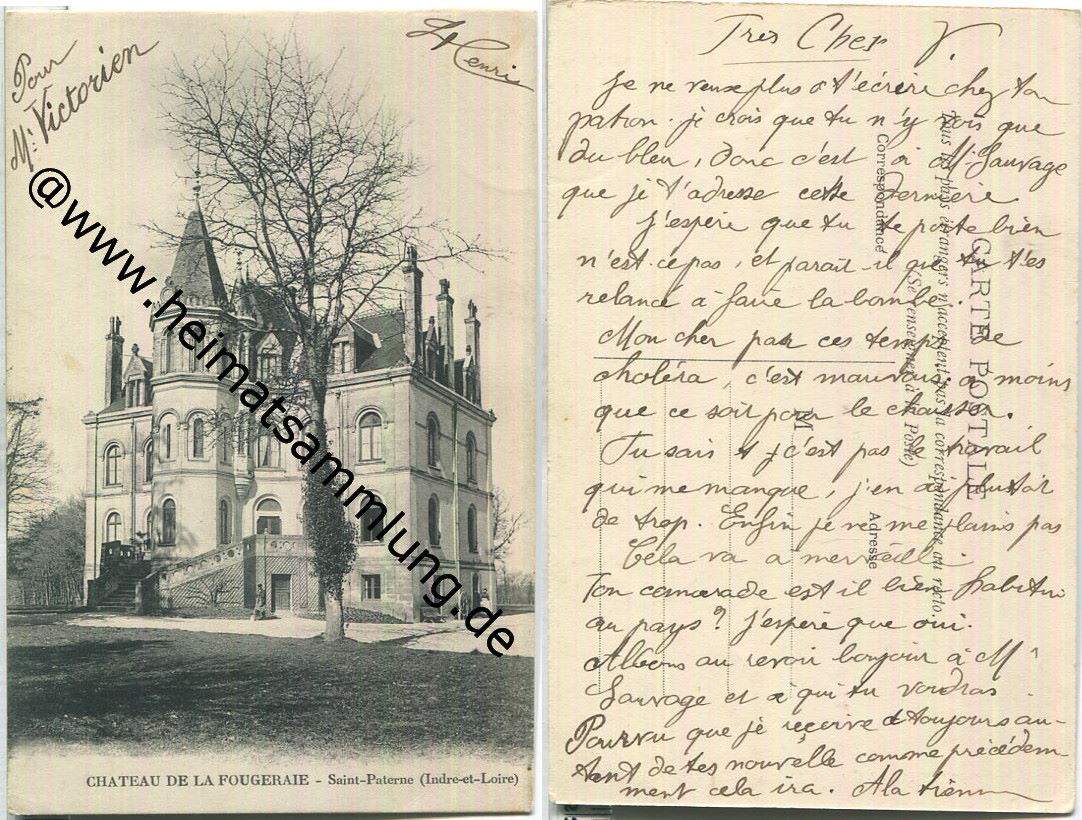 Pour
Mr Victorien
Henri
@www.heimatsammlung.de
CHATEAU DE LA FOUGERAIE - Saint-Paterne (Indre-et-Loire)
Tres Cher V.
Je ne veux plus t'écrire chez ton
patron. je crois que tu n'y vois que
du bleu, donc c'est à Mr Sauvage
que je t'adresse cette dernière.
J'espère que tu te porte bien
n'est-ce pas, et parait-il que tu t'es
relancé à faire la bombe.
Mon cher par ces temps de
choléra, c'est mauvais, à moins
que ce soit pour le chausson.
Tu sais c'est pas le travail
qui me manque, j'en ai plustôt
de trop. Enfin je ne me plains pas
Cela va a merveille.
Ton camarade est il bien habitué
au pays? J'espère que oui.
Allons au revoir bonjour à Mr
Sauvage et à qui tu voudras.
Pourvu que je reçoive toujours au-
tant de tes nouvelle comme précédem-
ment cela ira. A la tienne
CARTE POSTALE
Tous les pays étrangers n'acceptent pas la correspondance au recto.
(Se renseigner à la Poste)
Correspondance
Adresse
M